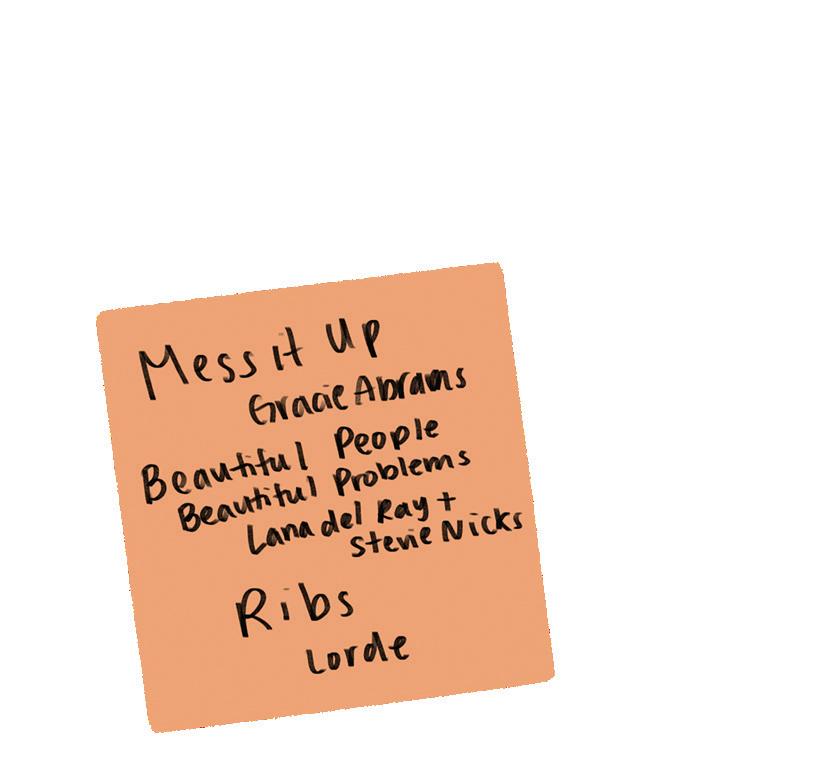 Mess it Up
Gracie Abrams
Beautiful People
Beautiful Problems
Lana del Ray +
Stevie Nicks
Ribs
Lorde